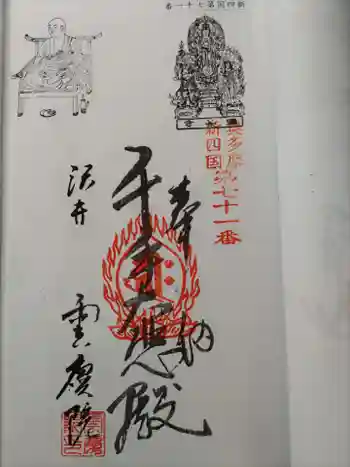 新四国第七十一番
奥多摩
新四国第七十一番
奉納
千手大悲殿
沢井
雲慶院